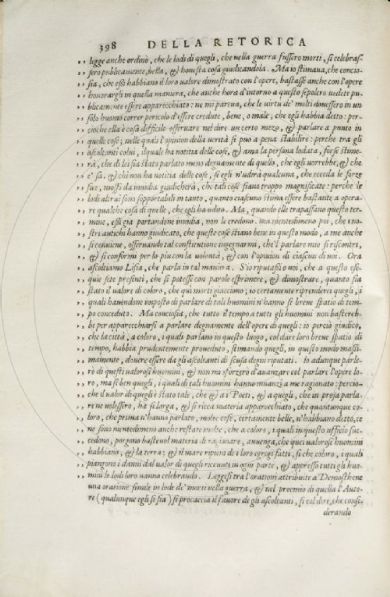 398 DELLA RETORICA
legge anche ordinò, che le lodi di quegli, che nella guerra fussero morti, si celebras-
sero publicamente, bella, & honesta cosa giudicandola. Ma io stimaua, che concio-
sia, che essi habbiano il loro ualore dimostrato con l'opere, bastasse anche con l'opere
honorargli in quella maniera, che anche hora d'intorno a questo sepolcro uedete pu-
blicamente essere apparecchiato: ne mi parea, che le uirtu de' molti douessero in un
solo huomo correr pericolo d'essere credute, bene, o male, che egli habbia detto: per-
cioche ella è cosa difficile osseruare nel dire un certo mezo, & parlare a punto in
quelle cose, nelle quali l'opinion della uerità si puo a pena stabilire: perche tra gli
ascoltanti colui, il quale ha notitia delle cose, & ama la persona lodata,
rà, che di lei sia stato parlato meno degnamente di quello, che egli uorrebbe, & che
e' sa, & chi non ha notitia delle cose, s'egli n'udirà qualcuna, che ecceda le forze
sue, mosso da inuidia giudicherà, che tali cose siano troppo magnificate: perche le
lodi altrui sono sopportabili in tanto, quanto ciascuno stima essere bastante a opera-
re qualche cosa di quelle, che egli ha udito. Ma, quando elle trapassano questo ter-
mine, essi già portandone inuidia, non le credono. Ma nondimeno poi, che i no-
stri antichi hanno giudicato, che queste cose stiano bene in questo modo, a me anche
si conuiene, osseruando tal constitutione ingegnarmi, che'l parlare mio si riscontri,
& si conformi per lo piu con la uolontà, & con l'opinion di ciascun di uoi. Ora
ascoltiamo Lisia, che parla in tal maniera. S'io riputassi o uoi, che a questo ese-
quie sete presenti, che si potesse con parole esprimere, & dimostrare, quanto sia
stato il ualore di coloro, che quì morti giacciono, io certamente riprenderei quegli, i
quali hauendone imposto di parlare di tali huomini n'hanno sì breue spatio di tem-
po conceduto. Ma conciosia, che tutto il tempo a tutti gli huomini non bastereb-
be per apparecchiarsi a parlare degnamente dell'opere di quegli: io perciò giudico,
che la città, a coloro, i quali parlano in questo luogo, col dare loro breue spatio di
tempo, habbia prudentemente proueduto, stimando quegli, in questo modo massi-
mamente, douere essere da gli ascoltanti di scusa degni riputati. Io adunque parle-
rò di questi ualorosi huomini, & non mi sforzerò d'auanzare col parlare l'opere lo-
ro, ma sì ben quegli, i quali di tali huomini hanno innanzi a me ragionato: percio-
che il ualor di quegli è stato tale, che & a i Poeti, & a quegli, che in prosa parla-
re ne uolessero, ha sì larga, & sì ricca materia apparecchiato, che quantunque co-
loro, che prima n'hanno parlato, molte cose, certamente belle, n'habbiano detto,
ne sono nondimeno anche restate molte, che a coloro, i quali in questo ufficio suc-
cedono, porgono basteuol materia di ragionare, auuenga, che quei ualorosi huomini
habbiano, & la terra, & il mare ripieno de i loro egregi fatti, sì che coloro, i quali
piangono i danni dal ualor di quegli riceuuti in ogni parte, & appresso tutti gli huo-
mini le lodi loro uanno celebrando. Leggesi tra l'orationi attribuite a Demosthene
una oratione simile in lode de' morti nella guerra, & nel proemio di quella l'Auto-
re (qualunque egli si sia) si procaccia il fauore di gli ascoltanti, sì col dire, che consi-
derando